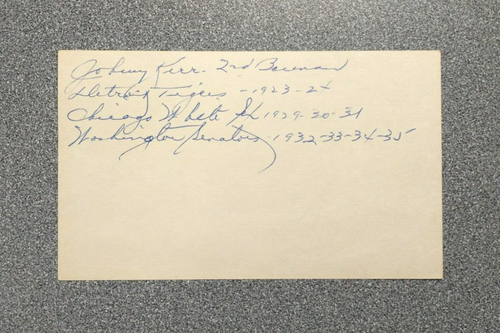 Johnny Kerr. 2nd Baseman
Detroit Tigers - 1923-24
Chicago White Sx 1929-30-31
Washington Senators 1932-33-34-35